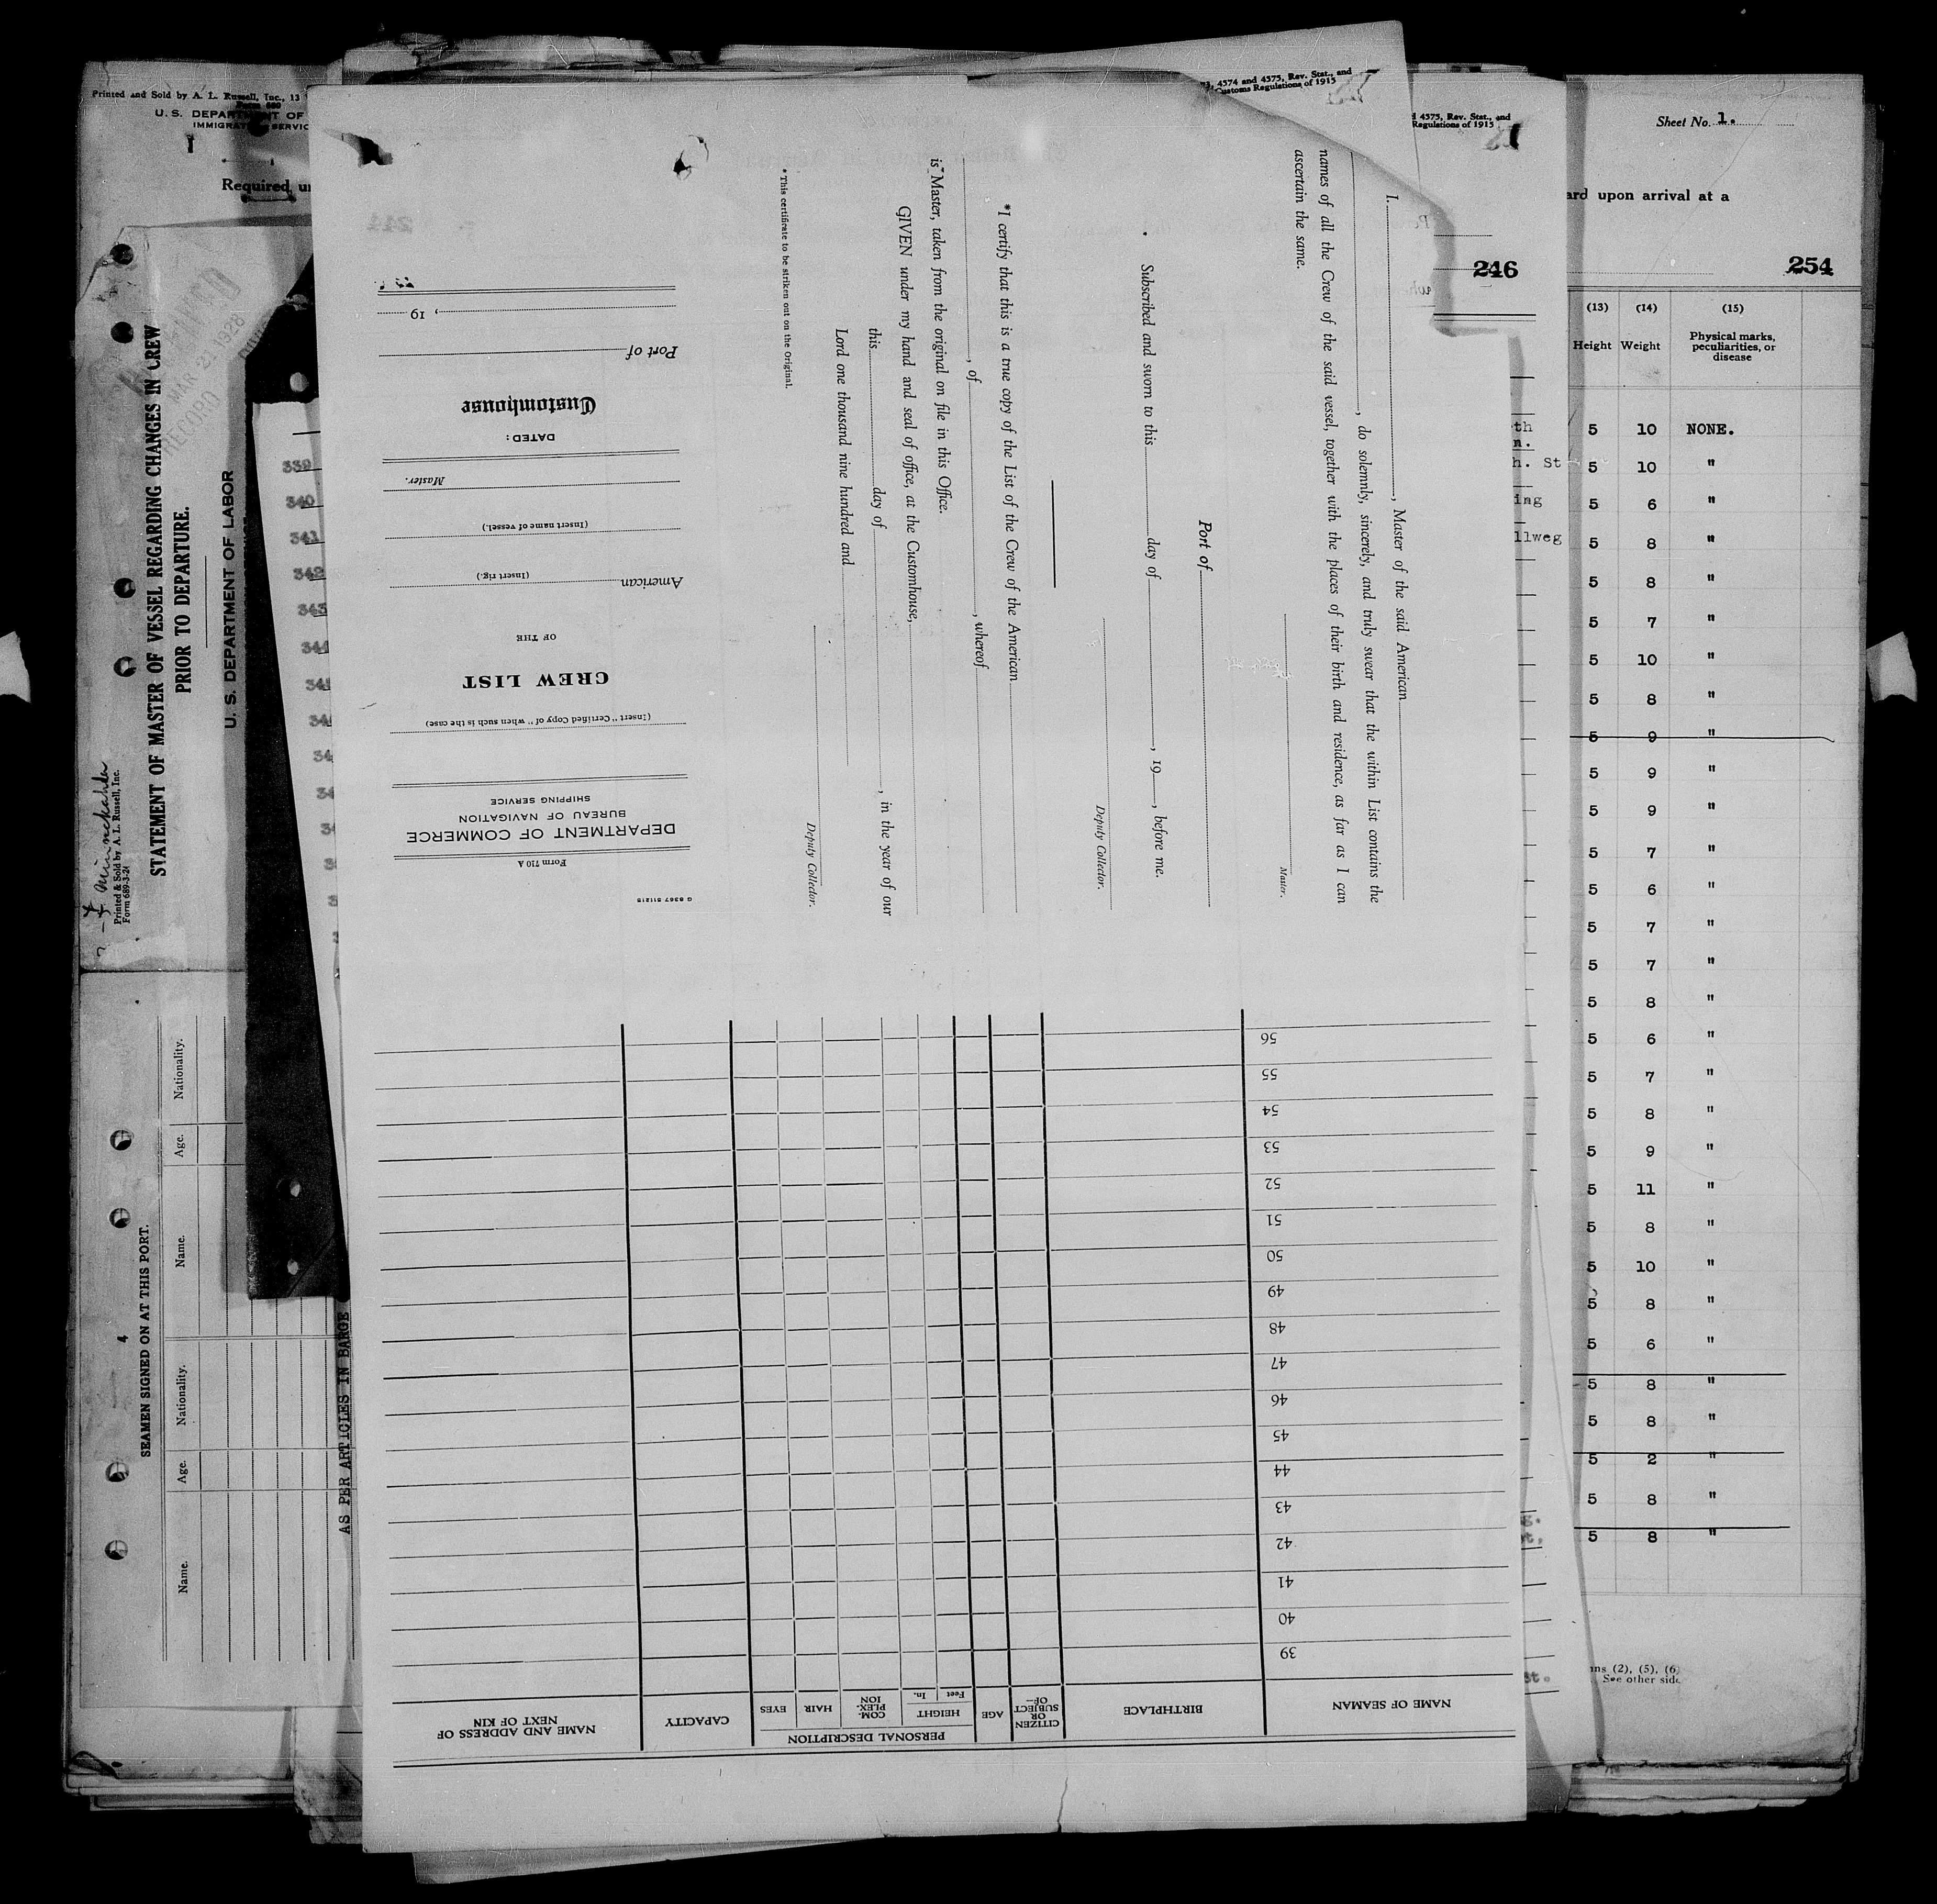 Printed and Sold by A. L. Russell, Inc., 13
Form 680
U. S. DEPARTMENT OF
IMMIGRATION SERVIC
Required, un
STATEMENT OF MASTER OF VESSEL REGARDING CHANGES IN CREW
PRIOR TO DEPARTURE.
U. S. DEPARTMENT OF LABOR
MAR 30 1928
RECORD
Minnekahda
Printed & Sold by A. L. Russell, Inc.
Form 689-3-24
SEAMEN SIGNED ON AT THIS PORT.
Name.
Age.
Nationality.
Name.
Age.
Nationality.
4
AS PER ARTICLES IN BARGE
339
340
341
342
343
344
G 6367 511215
Form 710 A
DEPARTMENT OF COMMERCE
BUREAU OF NAVIGATION
SHIPPING SERVICE
(Insert "Certified Copy of" when such is the case)
CREW LIST
OF THE
American
(Insert rig.)
(Insert name of vessel.)
Master.
DATED:
Customhouse
Port of
, 19
I, , Master of the said American
, do solemnly, sincerely, and truly swear that the within List contains the
names of all the Crew of the said vessel, together with the places of their birth and residence, as far as I can
ascertain the same.
Master.
Port of
Subscribed and sworn to this day of , 19 , before me.
Deputy Collector.
*I certify that this is a true copy of the List of the Crew of the American
, of , whereof
is Master, taken from the original on file in this Office.
GIVEN under my hand and seal of office, at the Customhouse,
this day of , in the year of our
Lord one thousand nine hundred and
Deputy Collector.
* This certificate to be striken out on the Original.
NAME OF SEAMAN
BIRTHPLACE
CITIZEN OR SUBJECT OF—
AGE
PERSONAL DESCRIPTION
HEIGHT
Feet In.
COM-PLEX-ION
HAIR
EYES
CAPACITY
NAME AND ADDRESS OF NEXT OF KIN
39
40
41
42
43
44
45
46
47
48
49
50
51
52
53
54
55
56
4574 and 4575, Rev. Stat., and
Customs Regulations of 1915
4575, Rev. Stat., and
Regulations of 1915
246
Sheet No. 1.
ard upon arrival at a
254
(13) (14) (15)
Height Weight Physical marks, peculiarities, or disease
th
n.
h. St
ing
llweg
5 10 NONE.
5 10 "
5 6 "
5 8 "
5 8 "
5 7 "
5 10 "
5 8 "
5 9 "
5 9 "
5 9 "
5 7 "
5 6 "
5 7 "
5 7 "
5 8 "
5 6 "
5 7 "
5 8 "
5 9 "
5 11 "
5 8 "
5 10 "
5 8 "
5 6 "
5 8 "
5 8 "
5 2 "
5 8 "
5 8 "
st.
ns (2), (5), (6
See other side